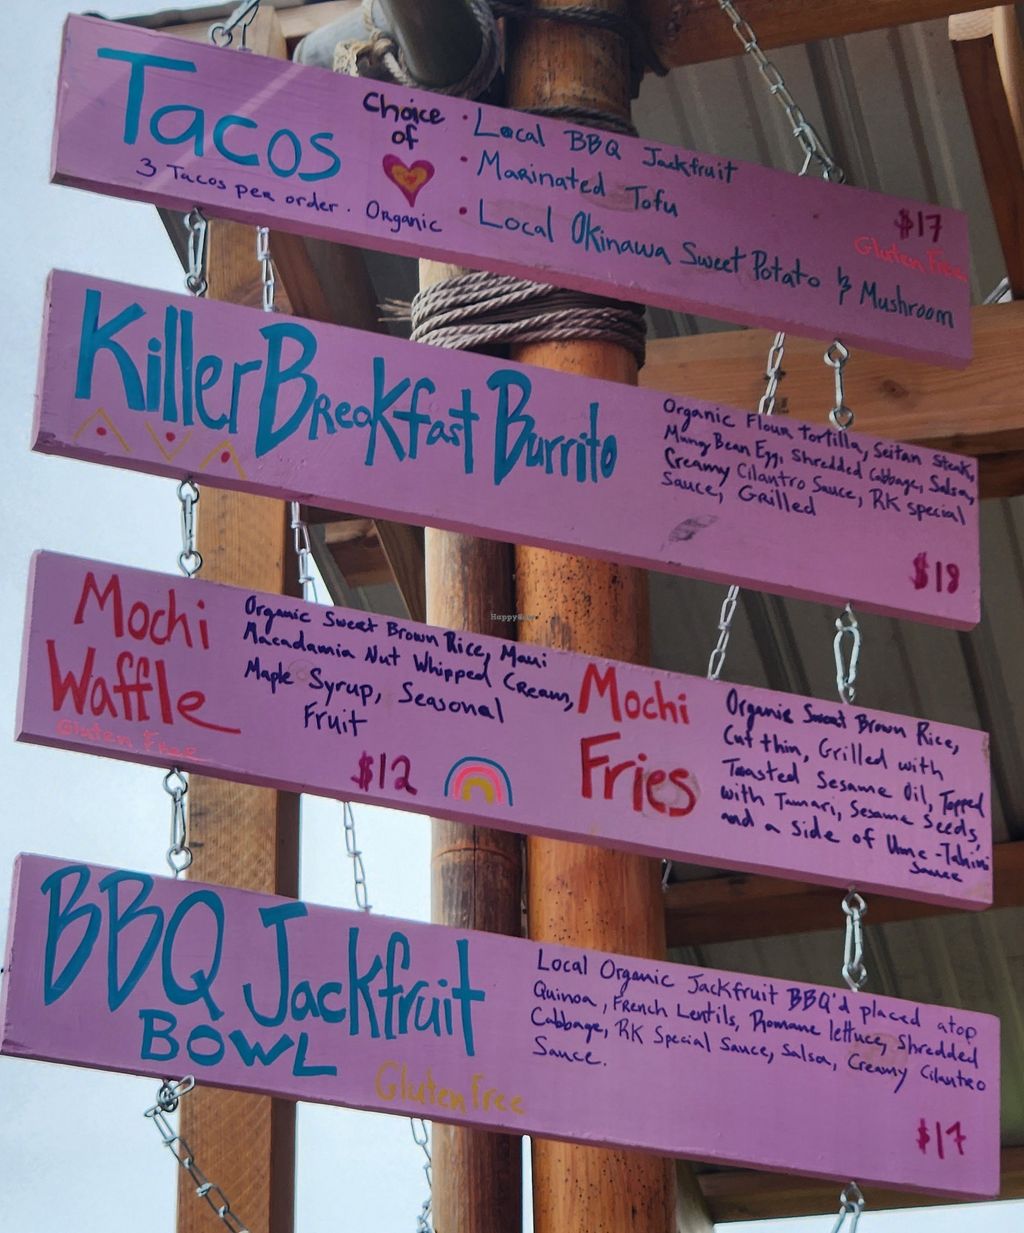 Tacos
3 Tacos per order. Organic
Choice
of
• Local BBQ Jackfruit
• Marinated Tofu
• Local Okinawa Sweet Potato & Mushroom
$17
Gluten Free
Killer Breakfast Burrito
Organic Flour Tortilla, Seitan Steak,
Mung Bean Egg, Shredded Cabbage, Salsa,
Creamy Cilantro Sauce, RK special
Sauce, Grilled
$18
HappyCow
Mochi
Waffle
Gluten Free
Organic Sweet Brown Rice, Maui
Macadamia Nut Whipped Cream,
Maple Syrup, Seasonal
Fruit
$12
Mochi
Fries
Organic Sweet Brown Rice,
Cut thin, Grilled with
Toasted Sesame Oil, Topped
with Tamari, Sesame Seeds,
and a side of Ume-Tahini
Sauce
BBQ Jackfruit
BOWL
Gluten Free
Local Organic Jackfruit BBQ'd placed atop
Quinoa, French Lentils, Romane lettuce, Shredded
Cabbage, RK Special Sauce, Salsa, Creamy Cilantro
Sauce.
$17